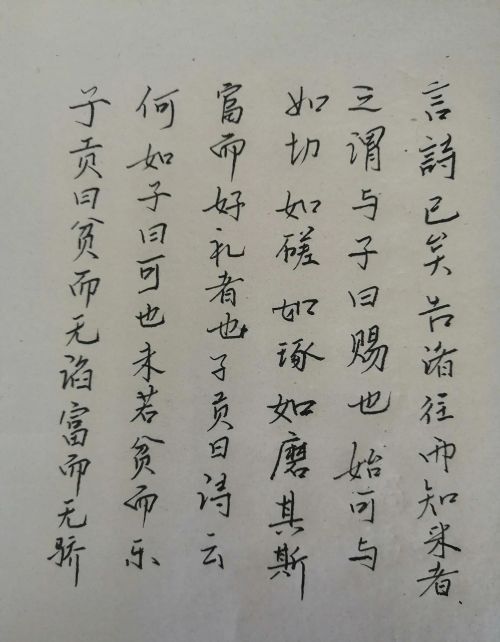 子贡曰贫而无谄富而无骄
何如子曰可也未若贫而乐
富而好礼者也子贡曰诗云
如切如磋如琢如磨其斯
之谓与子曰赐也始可与
言詩已矣告诸往而知来者